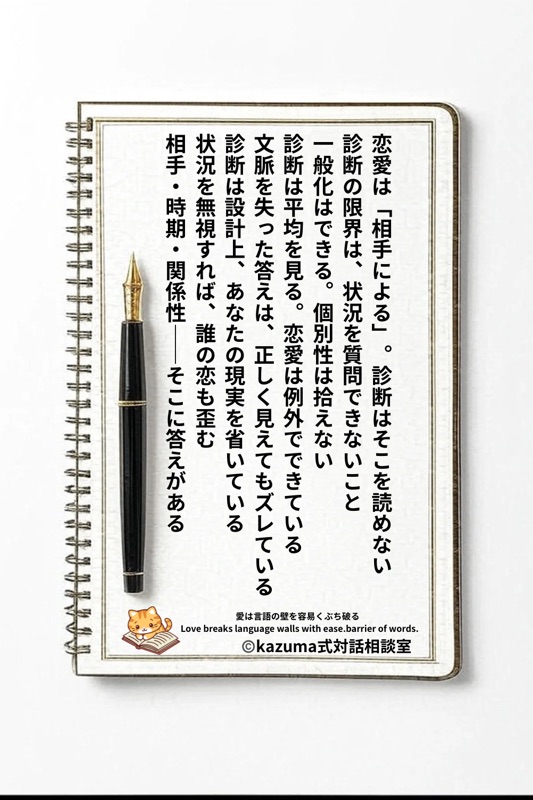 恋愛は「相手による」。診断はそこを読めない
診断の限界は、状況を質問できないこと
一般化はできる。個別性は拾えない
診断は平均を見る。恋愛は例外でできている
文脈を失った答えは、正しく見えてもズレている
診断は設計上、あなたの現実を省いている
状況を無視すれば、誰の恋も歪む
相手・時期・関係性――そこに答えがある
愛は言語の壁を容易くぶち破る
Love breaks language walls with ease.barrier of words.
©kazuma式対話相談室